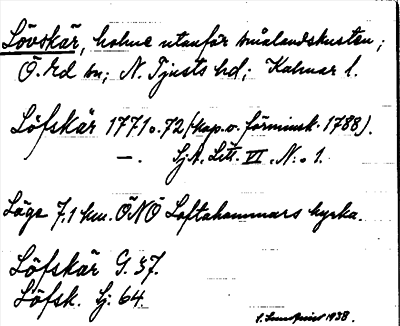 Lövskär, holme utanför smålandskusten;
Ö. Ed sn; N. Tjusts hd; Kalmar l.
Löfskär 1771 o. 72 (kop. o. förminsk. 1788).
—. SjA. Litt. VI. N:o 1.
Läge 7,1 km. ÖNÖ Loftahammars kyrka.
Löfskär G. 37.
Löfsk. Sj. 64.
1938.